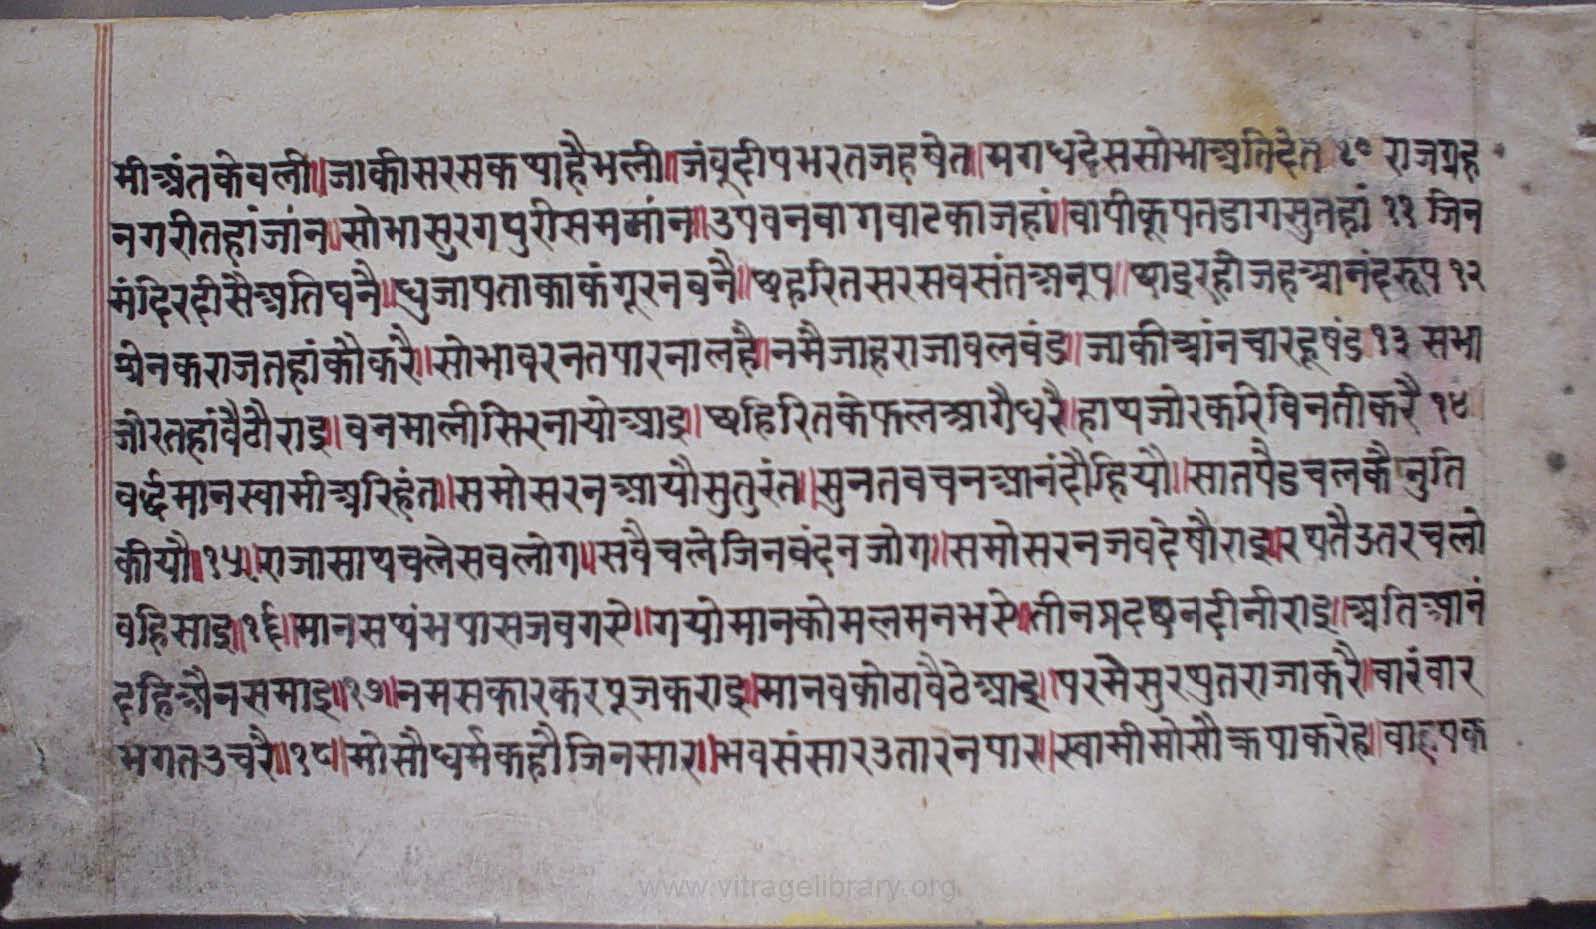 मीअंतकेवली॥जाकीसरसकथाहैभली॥जंबूदीपभरतजहषेत॥मगधदेससोभाअतिदेत १० राजग्रह
नगरीतहांजांन॥सोभासुरगपुरीसममांन॥उपवनबागवाटकाजहां॥वापीकूपतडागसुतहां ११ जिन
मंदिरदीसैअतिघनै॥धुजापताकाकंगूरनबनै॥छहरितसरसवसंतअनूप॥थाइरहीजहआनंदरूप १२
श्रेनकराजतहांकौकरै॥सोभावरनतपारनालहै॥नमैजाहराजाबलवंड॥जाकीआंनचारहूषंड १३ सभा
जोरतहांवैठौराइ॥वनमालीसिरनायोआइ॥छहिरितकेफलआगैधरै॥हाथजोरकरिविनतीकरै १४
वर्द्धमानस्वामीअरिहंत॥समोसरनआयौसुतुरंत॥सुनतवचनआनंदौहियौ॥सातपैडचलकैनुति
कीयौ॥१५॥राजासाथचलेसवलोग॥सवैचलेजिनवंदनजोग॥समोसरनजवदेषौराइ॥रथतैउतरचलो
वहिसाइ॥१६॥मानसथंभपासजवगसे॥गयोमानकोमलमनभसे॥तीनप्रदछनदीनीराइ॥अतिआनं
दहिअैनसमाइ॥१७॥नमसकारकरपूजकराइ॥मानवकोठावैठेआइ॥परमेसुरथुतराजाकरै॥वारंवार
भगतउचरै॥१८॥मोसौधर्मकहौजिनसार॥भवसंसारउतारनपार॥स्वामीमोसौक्रपाकरेह॥वाहपक
www.vitragelibrary.org